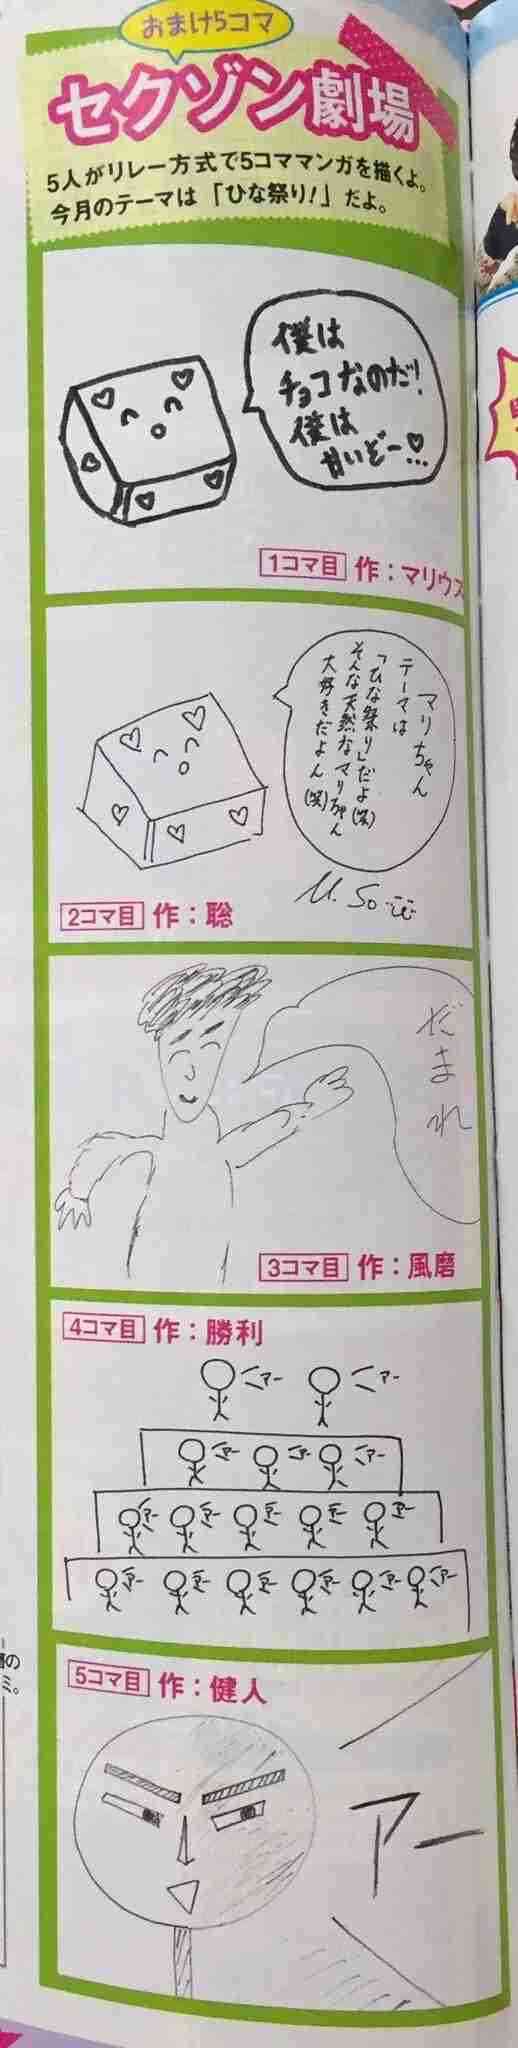 おまけ5コマ
セクゾン劇場
5人がリレー方式で5コママンガを描くよ。
今月のテーマは「ひな祭り!」だよ。
僕は
チョコなのだ!
僕は
甘いぞー♡...
1コマ目 作:マリウス
マリちゃん
テーマは
「ひな祭り」だよ(笑)
そんな天然なマリちゃん
大好きだよん(笑)
M. So
2コマ目 作:聡
だまれ
3コマ目 作:風磨
4コマ目 作:勝利
アー アー
アー アー アー
アー アー アー アー アー
アー アー アー アー アー アー
5コマ目 作:健人
アー